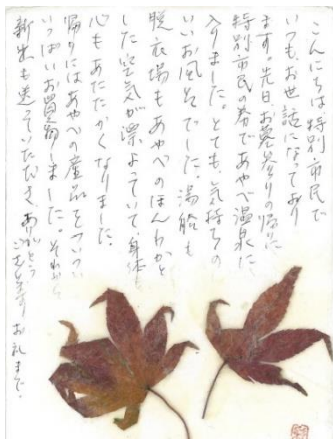 こんにちは、特別市民で
いつもお世話になっており
ます。先日、お墓参りの帰りに
特別市民の券であやべ温泉に
入りました。とても気持ちの
いいお風呂でした。湯船も
脱衣場もあやべのほんわかと
した空気が漂よっていて、身体も
心もあたたかくなりました。
帰りにはあやべの産品をついつい
いっぱいお買物しました。それから
新米も送っていただき、ありがとう
ございます。お礼まで。